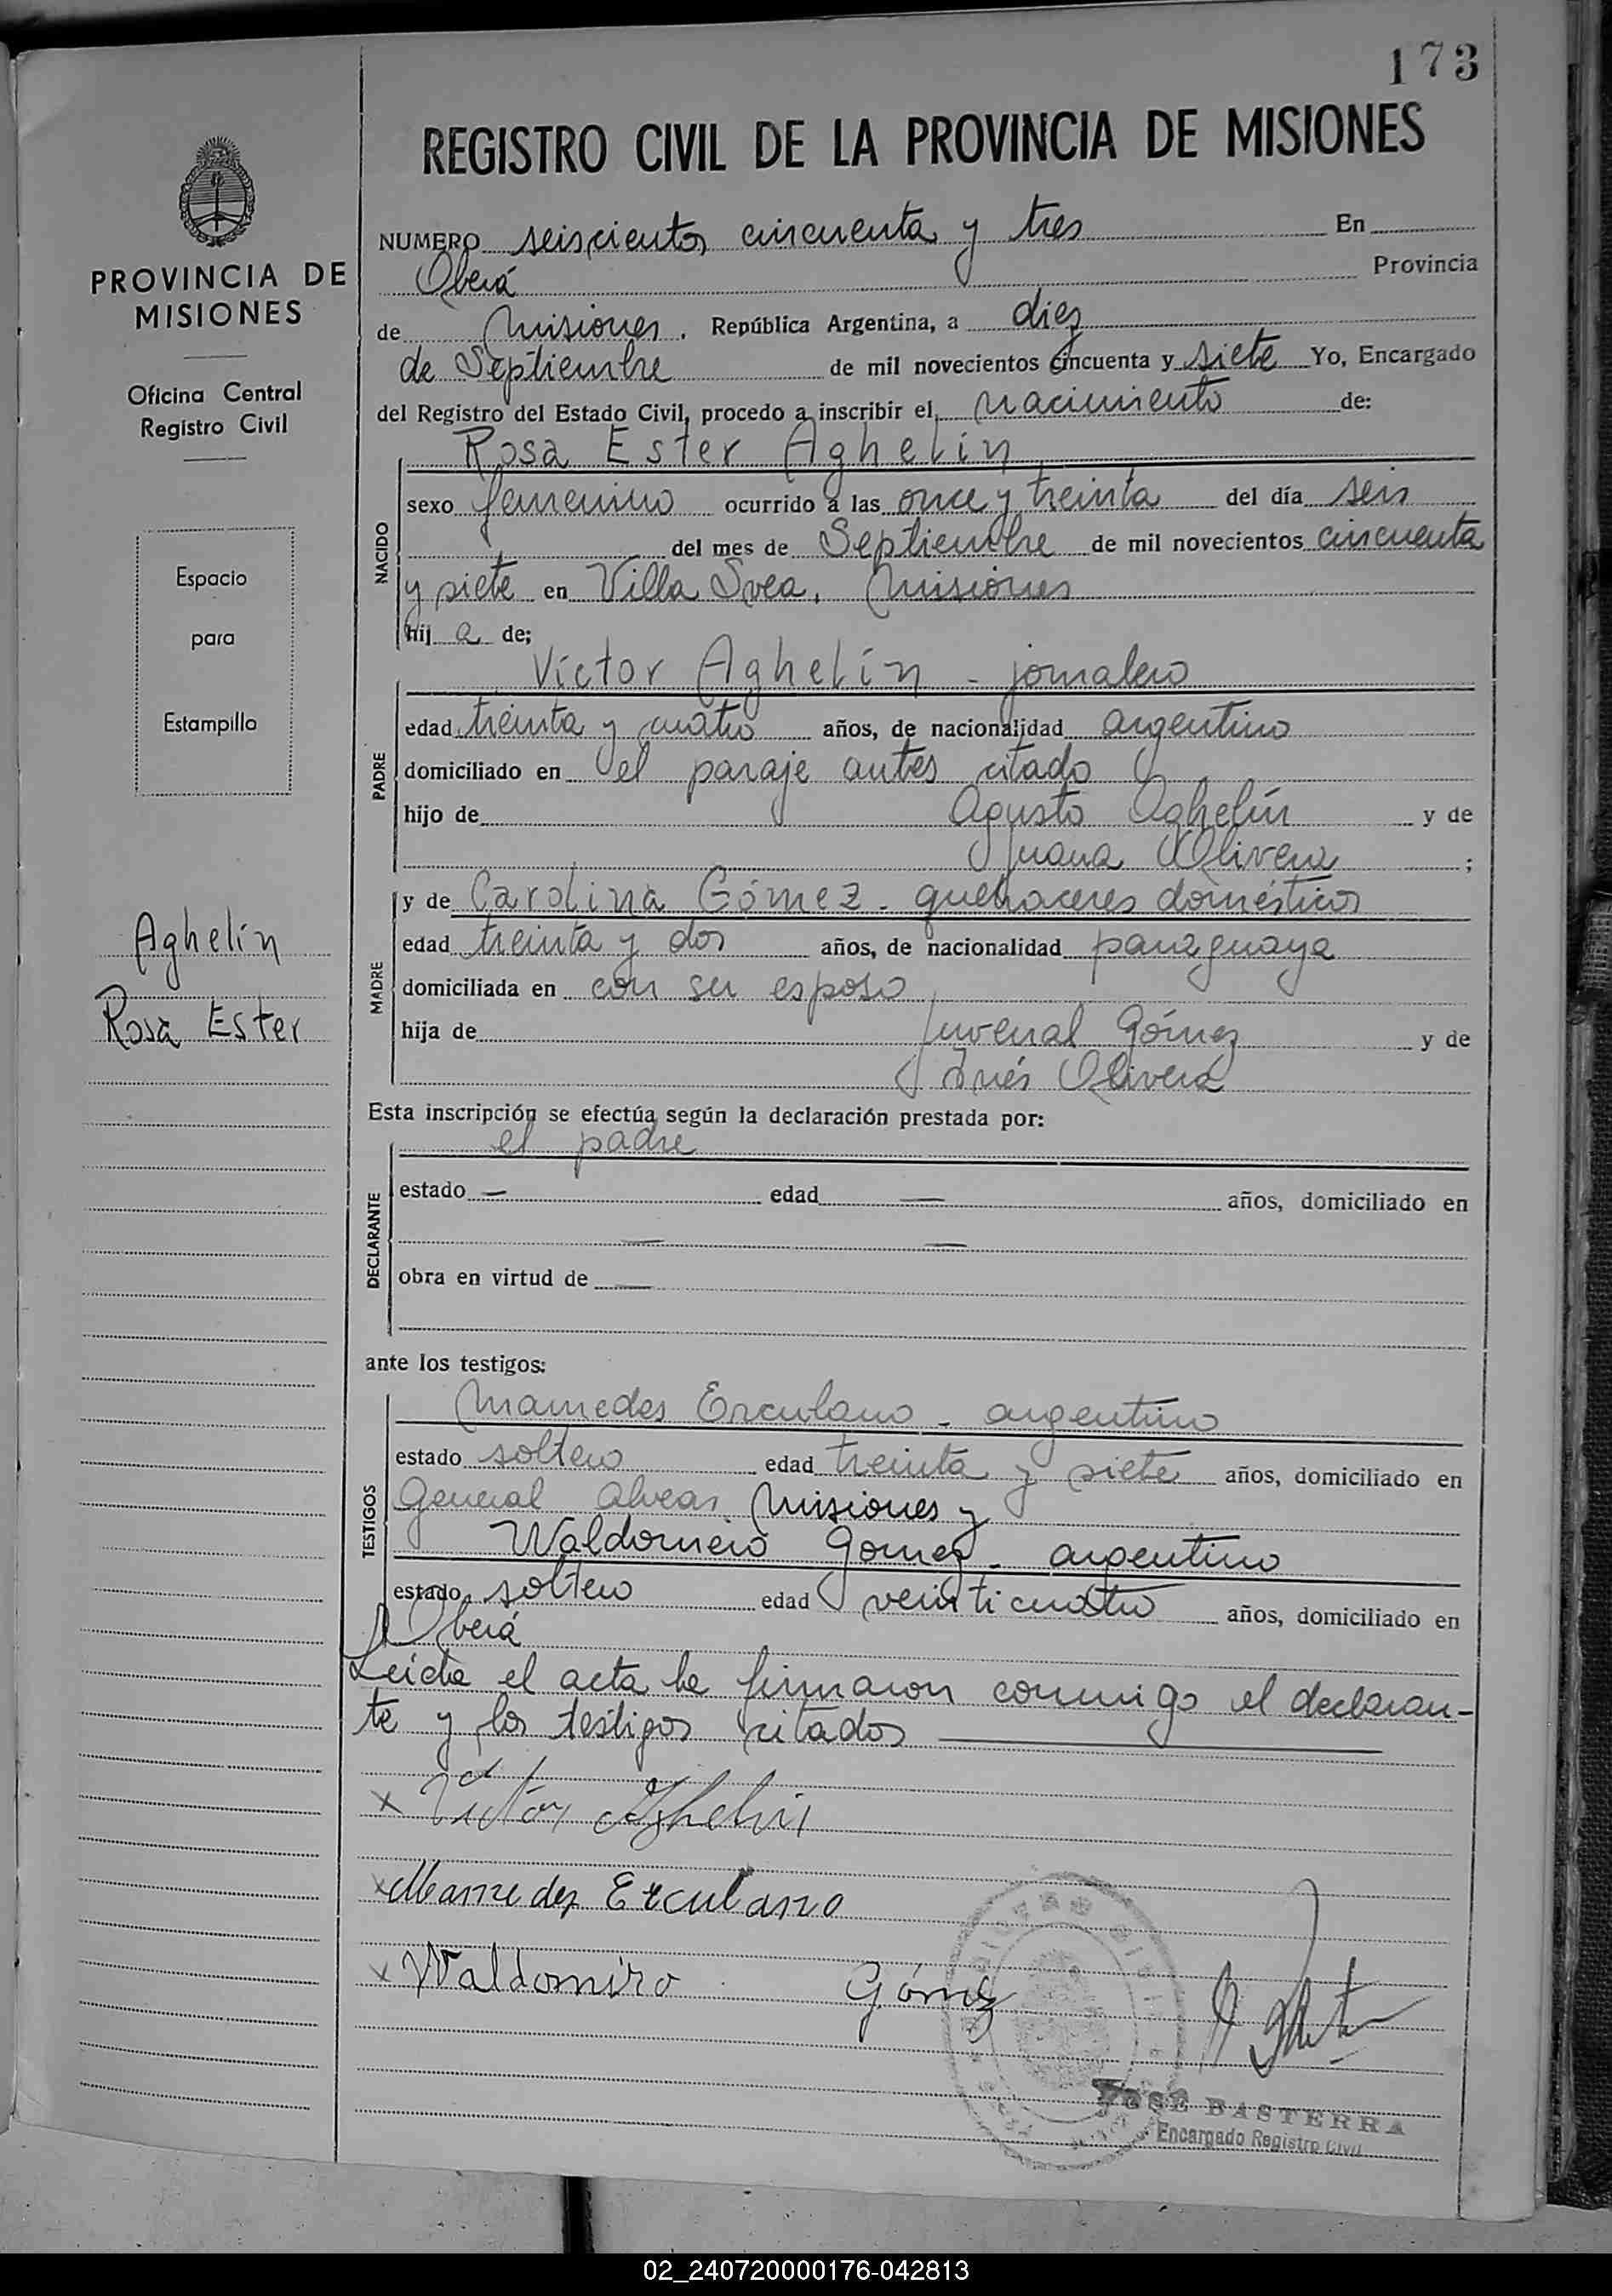 173
REGISTRO CIVIL DE LA PROVINCIA DE MISIONES
PROVINCIA DE
MISIONES
Oficina Central
Registro Civil
Espacio
para
Estampilla
Aghelín
Rosa Ester
NUMERO seiscientos cincuenta y tres En
Oberá Provincia
de Misiones. República Argentina, a diez
de Septiembre de mil novecientos cincuenta y siete Yo, Encargado
del Registro del Estado Civil, procedo a inscribir el nacimiento de:
Rosa Ester Aghelín
NACIDO
sexo femenino ocurrido a las once y treinta del día seis
del mes de Septiembre de mil novecientos cincuenta
y siete en Villa Svea, Misiones
hij a de;
Víctor Aghelín - jornalero
PADRE
edad treinta y cuatro años, de nacionalidad argentino
domiciliado en el paraje antes citado
hijo de Agusto Aghelín y de
Juana Olivera ;
y de Carolina Gómez - quehaceres domésticos
MADRE
edad treinta y dos años, de nacionalidad paraguaya
domiciliada en con su esposo
hija de Juvenal Gómez y de
Inés Olivera
Esta inscripción se efectúa según la declaración prestada por:
el padre
DECLARANTE
estado — edad — años, domiciliado en
— —
obra en virtud de —
ante los testigos:
Mamedes Erculano - argentino
TESTIGOS
estado soltero edad treinta y siete años, domiciliado en
General Alvear, Misiones y
Waldomero Gomez - argentino
estado soltero edad veinticuatro años, domiciliado en
Oberá
Leída el acta la firmaron conmigo el declaran-
te y los testigos citados
x Víctor Aghelin
x Mamedes Erculano
x Waldomiro Gómez
JOSE BASTERRA
Encargado Registro Civil
02_240720000176-042813